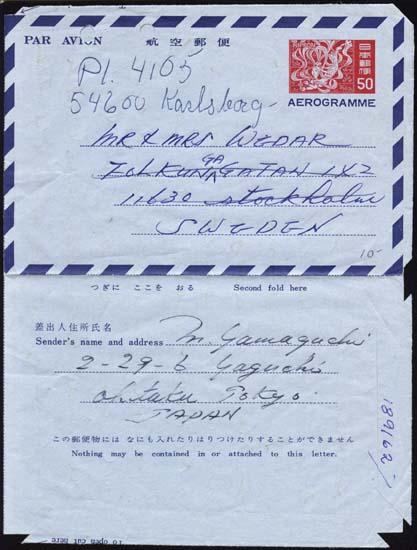 PAR AVION 航空郵便
NIPPON 日本郵便 50
AEROGRAMME
Pl. 4105
54600 Karlsborg
MR & MRS WEDAR
FOLKUNGAGATAN 1X2
GA
11630 Stockholm
SWEDEN
10-
つぎに ここを おる Second fold here
差出人住所氏名
Sender's name and address M. Yamaguchi
2-29-6 Yaguchi
Ohtaku Tokyo.
JAPAN
この郵便物には なにも入れたりはりつけたりすることができません
Nothing may be contained in or attached to this letter.
189162
To open cut here